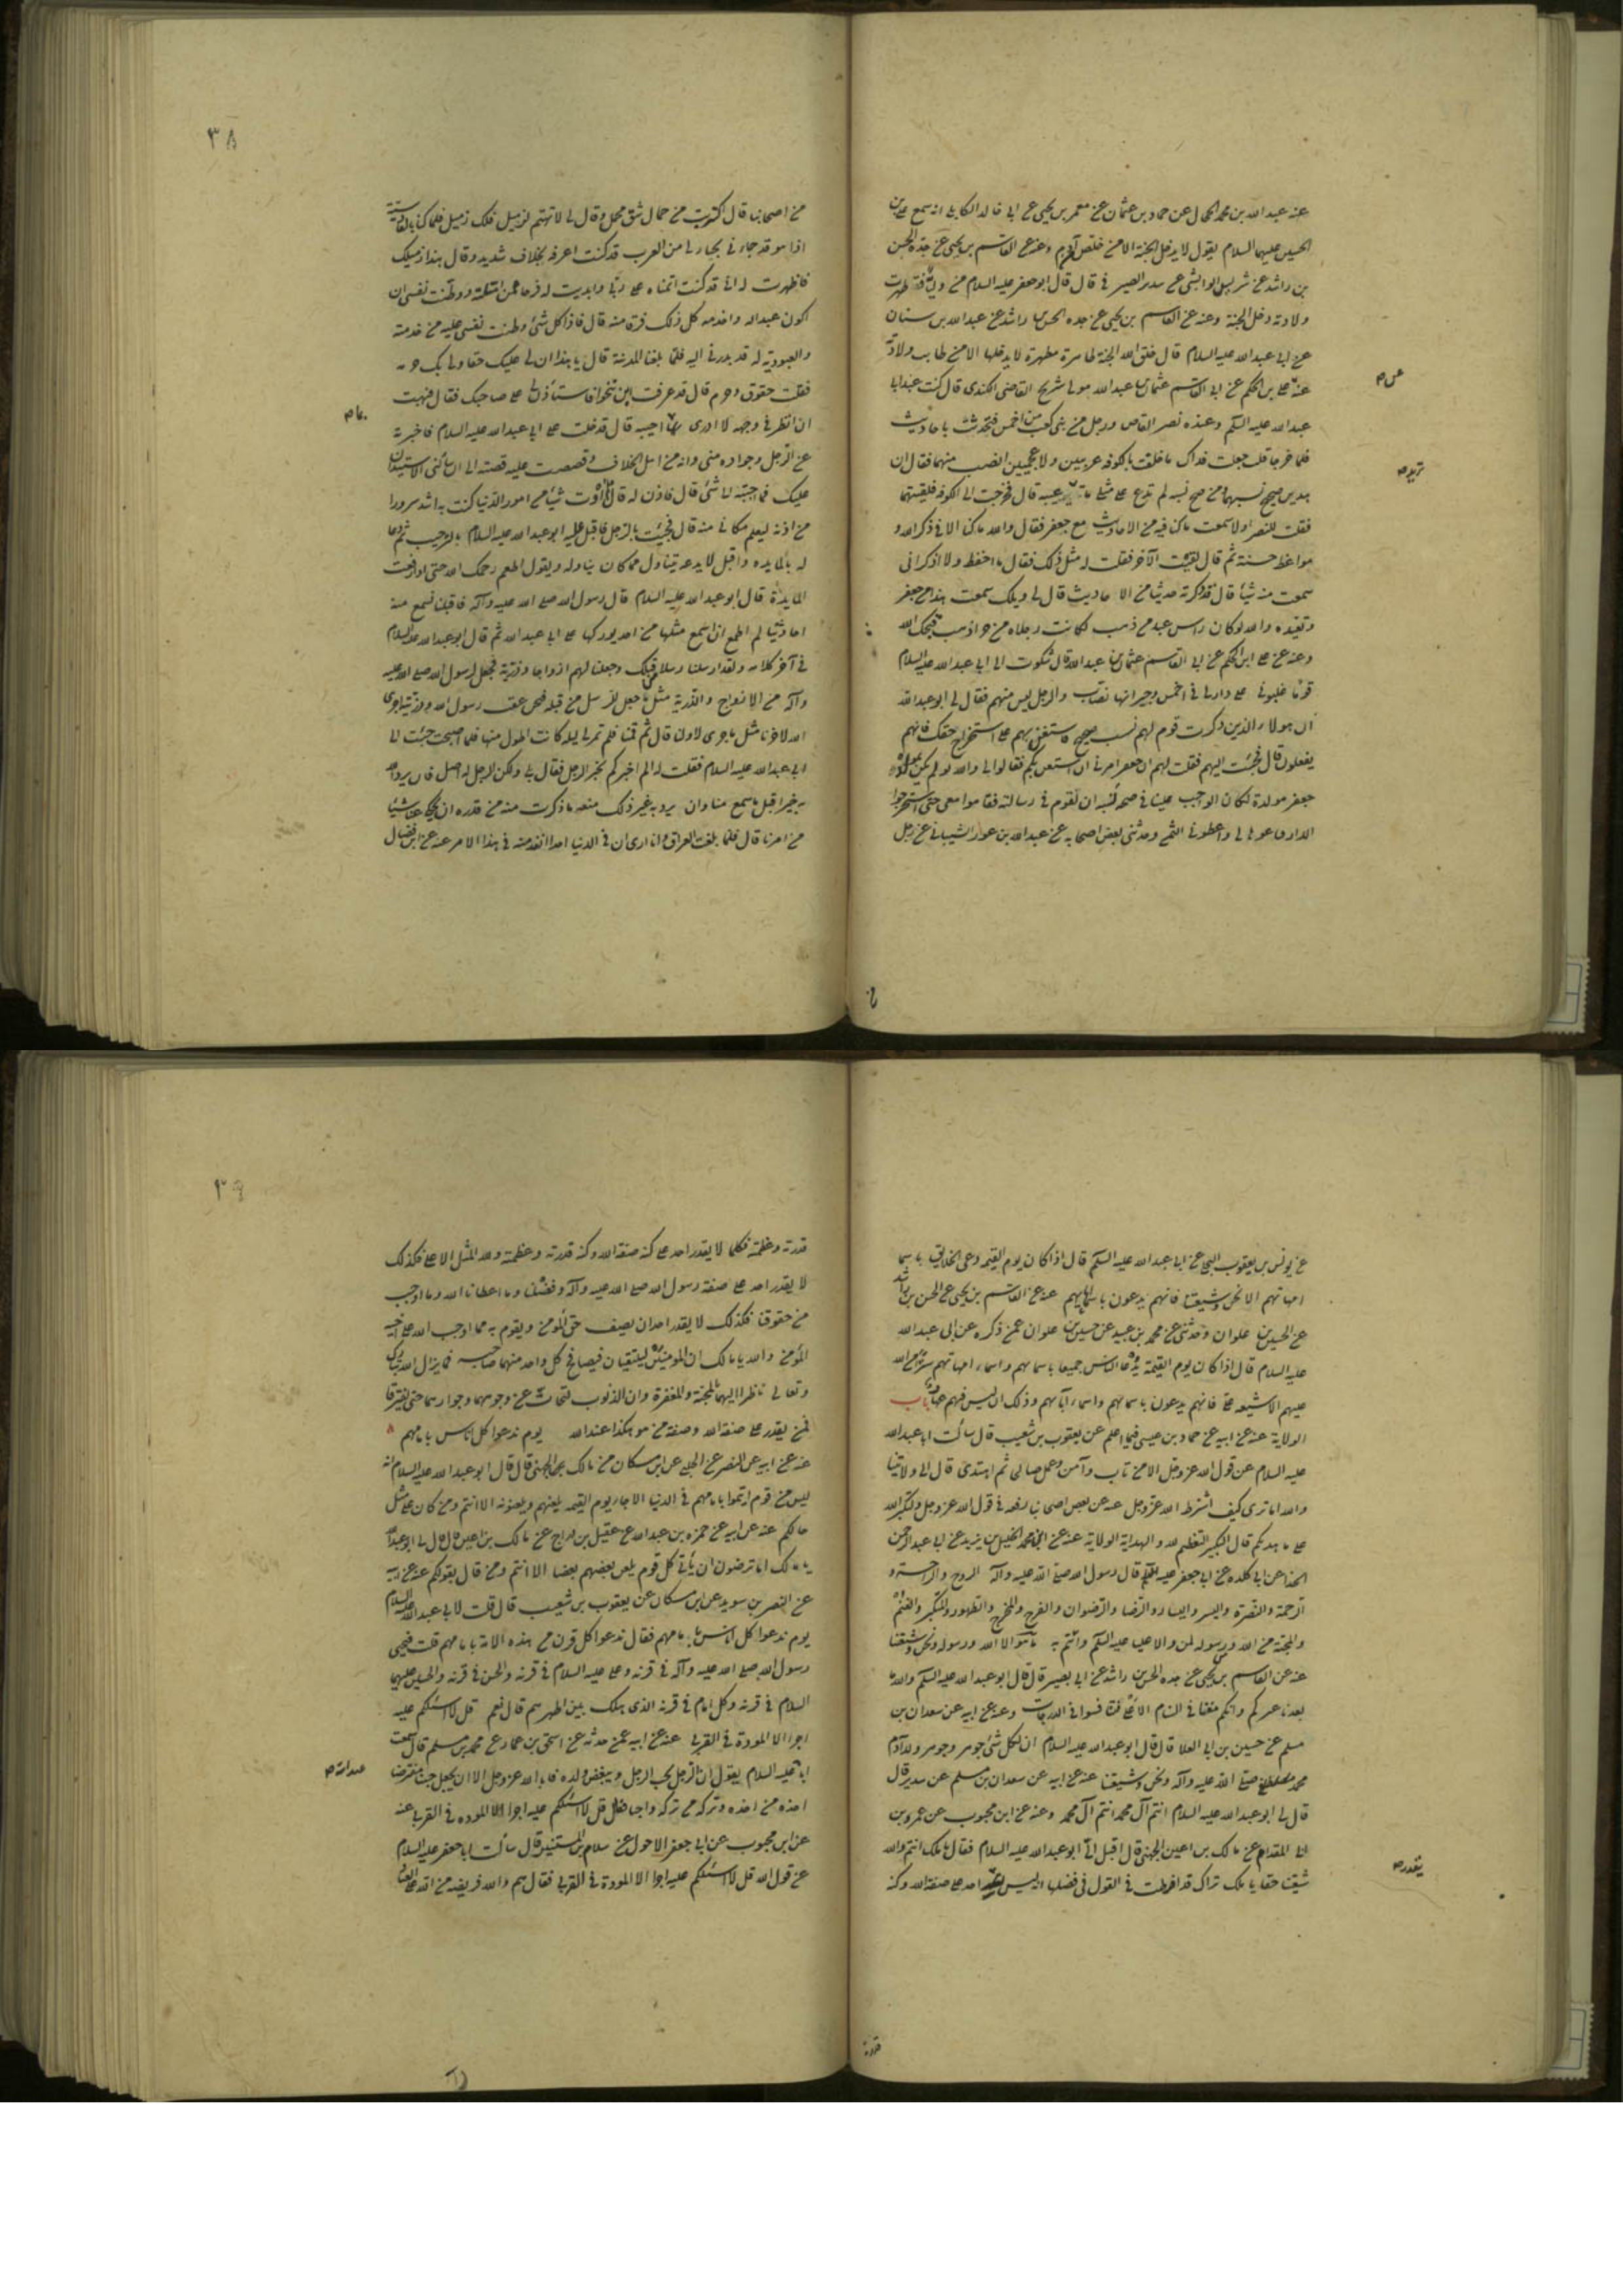 عنه عبد الله بن محمد الحجال عن حماد بن عثمان عن معمر بن يحيى عن ابي خالد الكابلي انه سمع علي بن
الحسين عليهما السلام يقول لا يدخل الجنة الا من خلص من آدم وعنه عن القاسم بن يحيى عن جده الحسن
بن راشد عن شريس الوابشي عن سدير الصيرفي قال قال ابو جعفر عليه السلام من طهرت
ولادته دخل الجنة وعنه عن القاسم بن يحيى عن جده الحسن بن راشد عن عبد الله بن سنان
عن ابي عبد الله عليه السلام قال خلق الله الجنة طاهرة مطهرة لا يدخلها الا من طابت ولادته
عنه عن علي بن الحكم عن ابي القاسم عثمان بن عبد الله مولى شريح القاضي الكندي قال كنت عند ابي
عبد الله عليه السلم وعنده نصر القاص ورجل من بني كعب من اخمس فتحدثت باحاديث
فلما خرجا قلت جعلت فداك ما خلقت بالكوفة عربيين ولا عجميين انصب منهما فقال ان
هذين صحيح نسبهما ومن صح نسبه لم تدع على مثلي ما يريد عيبه قال فخرجت الى الكوفه فلقيتهما
فقلت للنصر اولا سمعت ما كنا فيه من الاحاديث مع جعفر فقال والله ما كنا الا في ذكر الله و
مواعظ حسنة ثم قال لقيت الآخر فقلت له مثل ذلك فقال ما احفظ ولا اذكر اني
سمعت منه شيئا قال فذكرته حديثا من الاحاديث قال لي ويلك سمعت هذا من جعفر
وتعيده والله لو كان راس عبد من ذهب لكانت رجلاه من اذهب قبحك الله
وعنه عن علي ابن الحكم عن ابي القاسم عثمان بن عبد الله قال شكوت الى ابي عبد الله عليه السلام
قوما غلبوني على دار لي في اخمس وجيرانها نصاب والرجل ليس منهم فقال لي ابو عبد الله
ان هولاء الذين ذكرت قوم لهم نسب صحيح فاستعن بهم على استخراج حقك فانهم
يفعلون قال فجئت اليهم فقلت لهم ان جعفر امرني ان استعين بكم فقالوا لي والله لو لم يكن
جعفر مولده لكان الواجب علينا في صحة نسبه ان نقوم في رسالته فقاموا معي حتى استخرجوا
الدار فباعوها لي واعطوني الثمن وحدثني بعض اصحابه عن عبد الله بن عون الشيباني عن رجل
عن ص
تريد ص
٣٨
من اصحابنا قال اكتريت من جمال شق محمل وقال لي لا تهتم لزميل فلك زميل فلما كنا بالقادسية
اذا هو قد جاءني بجار لي من العرب قد كنت اعرفه بخلاف شديد وقال هذا زميلك
فاظهرت له اني قد كنت اتمناه على ربي وابديت له فرحا بمزاملته ووطنت نفسي ان
اكون عبدا له واخدمه كل ذلك فرقا منه قال فاذا كل شئ وطنت نفسي عليه من خدمته
والعبودية له قد يدرني اليه فلما بلغنا المدينة قال يا هذا ان لي عليك حقا ولي بك حرمة
فقلت حقوق وحرم قال قد عرفت اين تنحو فاستأذن لي على صاحبك فقال فبهت
ان انظر في وجهه لا ادري بما اجيبه قال فدخلت على ابي عبد الله عليه السلام فاخبرته
عن الرجل وجواره مني وانه من اهل الخلاف وقصصت عليه قصته الى ان سألني الاستيذان
عليك فما اجبته الى شئ قال فاذن له قال فما اوت شيئا من امور الدنيا كنت به اشد سرورا
من اذنه ليعلم مكاني منه قال فجئت بالرجل فاقبل عليه ابو عبد الله عليه السلام بالترحيب ثم دعا
له بالمايده واقبل لا يدعه يتناول مما كان يتناوله ويقول اطعم رحمك الله حتى اذا رفعت
المايدة قال ابو عبد الله عليه السلام قال رسول الله صلى الله عليه وآله فاقبلنا نسمع منه
احاديثا لم اطمع ان اسمع مثلها من احد يرويها على ابي عبد الله ثم قال ابو عبد الله عليه السلام
في آخر كلامه ولقد ارسلنا رسلا من قبلك وجعلنا لهم ازواجا وذرية فجعل لرسول الله صلى الله عليه
وآله من الازواج والذرية مثل ما جعل للرسل من قبله فنحن عقب رسول الله وذريته اجرى
الله لآخرنا مثل ما جرى لاولنا قال ثم قمنا فلم تمر لي ليلة كانت اطول منها فلما اصبحت جئت الى
ابي عبد الله عليه السلام فقلت له الم اخبركم بخبر الرجل فقال بلى ولكن الرجل له اصل فان يرد الله
به خيرا قبل ما سمع منا وان يرد به غير ذلك منعه ما ذكرت منه من قدره ان يحكي عنا شيئا
من امرنا قال فلما بلغت العراق وانا ارى ان في الدنيا احدا انفذ منه في هذا الامر عنه عن ابن فضال
بما ص
عن يونس بن يعقوب البجي عن ابي عبد الله عليه السلم قال اذا كان يوم القيمه دعى الخلايق باسما
امهاتهم الا نحن وشيعتنا فانهم يدعون باسماء آبايهم عنه عن القاسم بن يحيى عن الحسن بن راشد
عن الحسين بن علوان وحدثني عن محمد بن عبيد عن حسين بن علوان عمن ذكره عن ابي عبد الله
عليه السلام قال اذا كان يوم القيمة يدعا الناس جميعا باسمايهم واسماء امهاتهم سترا من الله
عليهم الا شيعة علي فانهم يدعون باسمايهم واسماء آبائهم وذلك ان ليس فيهم عهار باب
الولاية عنه عن ابيه عن حماد بن عيسى فيما اعلم عن يعقوب بن شعيب قال سألت ابا عبد الله
عليه السلام عن قول الله عز وجل الا من تاب وآمن وعمل صالحا ثم اهتدى قال الى ولايتنا
والله اما ترى كيف اشترط الله عز وجل عنه عن بعض اصحابنا رفعه في قول الله عز وجل ولتكبروا الله
على ما هديكم قال التكبير التعظيم لله والهداية الولاية عنه عن ابي محمد الخليل بن يزيد عن ابي عبد الرحمن
الحذا عن ابي كلده عن ابي جعفر عليه السلم قال رسول الله صلى الله عليه وآله الروح والراحة و
الرحمة والنصرة واليسر واليسار والرضا والرضوان والفرج والمخرج والظهور والتمكين والغنم
والمحبة من الله ومن رسوله لمن والا عليا عليه السلم وائتم به
عنه عن القاسم بن يحيى عن جده الحسن بن راشد عن ابي بصير قال قال ابو عبد الله عليه السلم
مسلم عن حسين بن ابي العلا قال قال ابو عبد الله عليه السلام ان لكل شئ جوهر وجوهر ولد آدم
محمد صلى الله عليه وآله ونحن وشيعتنا عنه عن ابيه عن سعدان بن مسلم عن سدير قال
قال لي ابو عبد الله عليه السلام انتم آل محمد انتم آل محمد وعنه عن ابن محبوب عن عمرو بن
ابي المقدام عن مالك بن اعين الجهني قال اقبل الي ابو عبد الله عليه السلام فقال يا ملك انتم والله
شيعتنا حقا يا ملك تراك قد افرطت في القول في فضلنا انه ليس يقدر احد على صفة الله وكنه
يقدر ص
قدرة
٣٩
قدرته وعظمته فكما لا يقدر احد على كنه صفة الله وكنه قدرته وعظمته ولله المثل الاعلى فكذلك
لا يقدر احد على صفة رسول الله صلى الله عليه وآله وفضلنا وما اعطانا الله وما اوجب
من حقوقنا فكذلك لا يقدر احد ان يصف حق المؤمن ويقوم به مما اوجب الله على اخيه
المؤمن والله يا مالك ان المؤمنين ليلتقيان فيصافح كل واحد منهما صاحبه فما يزال الله تبارك
وتعالى ناظرا اليهما بالمحبة والمغفرة وان الذنوب لتحات عن وجوههما وجوارحهما حتى يفترقا
فمن يقدر على صفة الله وصفة من هو هكذا عند الله يوم ندعوا كل اناس بامامهم
عنه عن ابيه عن النضر عن الحلبي عن ابن مسكان عن مالك الجهني قال قال ابو عبد الله عليه السلام انه
ليس من قوم ائتموا بامامهم في الدنيا الا جاء يوم القيمه يلعنهم ويلعنونه الا انتم ومن كان على مثل
حالكم عنه عن ابيه عن حمزه بن عبد الله عن عقيل بن دراج عن مالك بن اعين قال قال لي ابو عبد الله
يا مالك اما ترضون ان يأتي كل قوم يلعن بعضهم بعضا الا انتم ومن قال بقولكم عنه عن ابيه
عن النضر بن سويد عن ابن مسكان عن يعقوب بن شعيب قال قلت لابي عبد الله عليه السلام
يوم ندعوا كل اناس بامامهم فقال ندعوا كل قرن من هذه الامة بامامهم قلت فيجي
رسول الله صلى الله عليه وآله في قرنه وعلي عليه السلام في قرنه والحسن في قرنه والحسين عليهما
السلام في قرنه وكل امام في قرنه الذي هلك بين اظهرهم قال نعم قل لا اسئلكم عليه
اجرا الا المودة في القربى عنه عن ابيه عمن حدثه عن اسحق بن عمار عن محمد بن مسلم قال سمعت
ابا عليه السلام يقول ان الرجل يحب الرجل ويبغض ولده فابى الله عز وجل الا ان يجعل حبنا مفترضا
اخذه من اخذه وتركه من تركه واجبا فقال قل لا اسئلكم عليه اجرا الا الموده في القربى عنه
عن ابن محبوب عن ابي جعفر الاحول عن سلام بن المستنير قال سألت ابا جعفر عليه السلام
عن قول الله قل لا اسئلكم عليه اجرا الا المودة في القربى فقال هم والله فريضه من الله على العباد
عبد الله ص